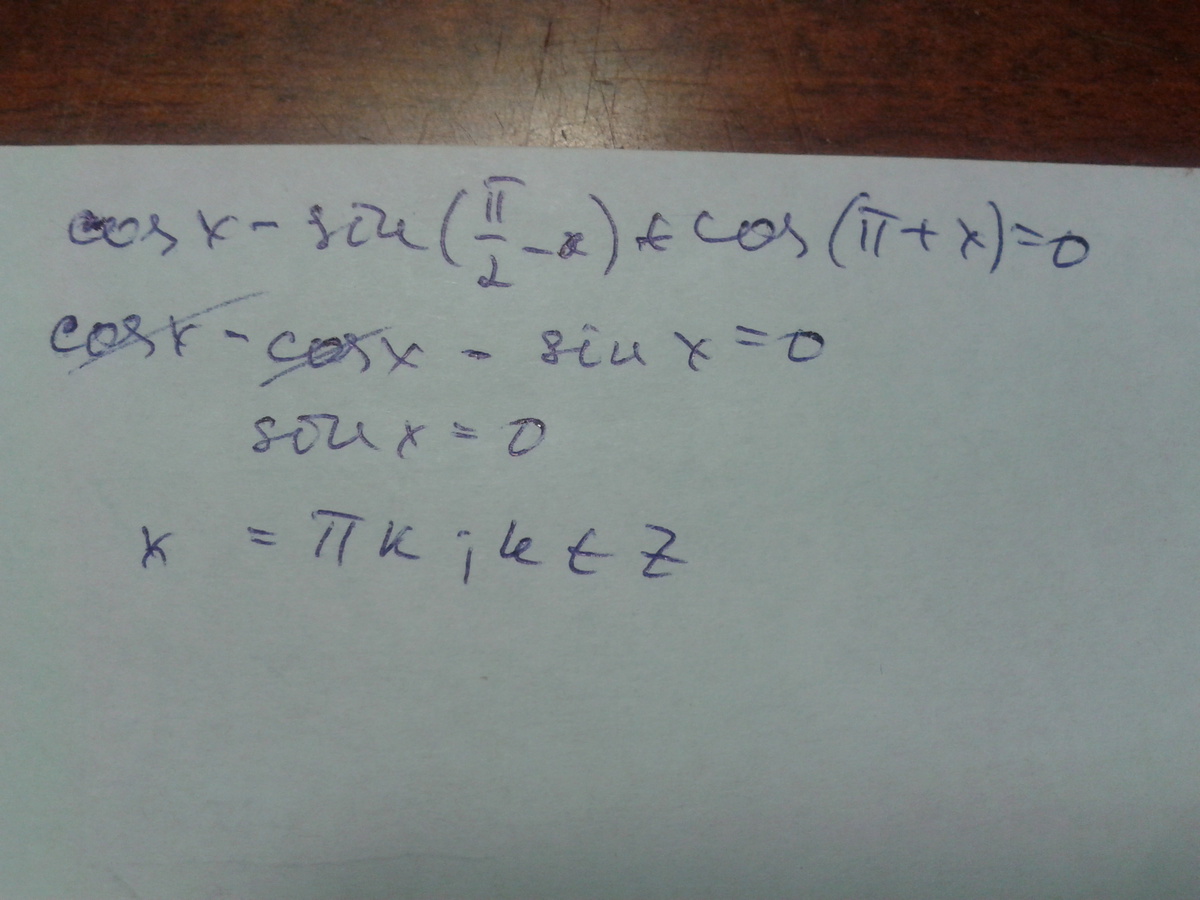 cos x - sin (π/2 - x) + cos (π + x) = 0
cos x - cos x - sin x = 0
sin x = 0
x = πk ; k ∈ Z